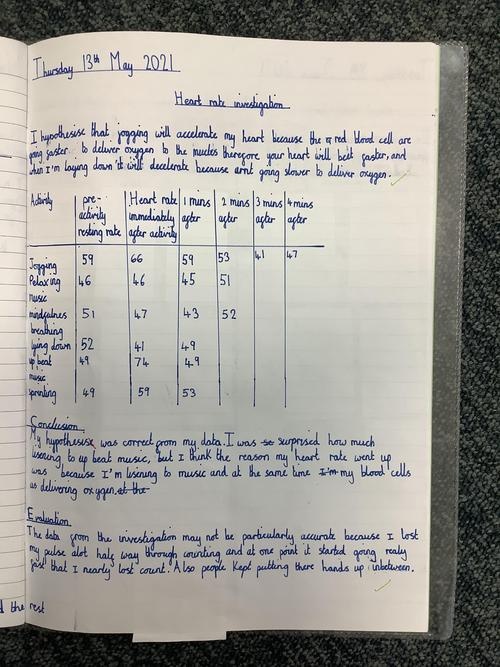 Thursday 13th May 2021
Heart rate investigation
I hypothesise that jogging will accelerate my heart because the red blood cell are
going faster to deliver oxygen to the mucles therefore your heart will beat faster, and
when I'm laying down it will decelerate because arnt going slower to deliver oxygen.
Activity pre-activity resting rate Heart rate immediately after activity 1 mins after 2 mins after 3 mins after 4 mins after
Jogging 59 66 59 53 41 47
Relaxing music 46 46 45 51
mindfulnes breathing 51 47 43 52
lying down 52 41 49
up beat music 49 74 49
sprinting 49 59 53
Conclusion
My hypothesise was correct from my data. I was so surprised how much
lisening to up beat music, but I think the reason my heart rate went up
was because I'm lisening to music and at the same time I'm my blood cells
is delivering oxygen at the
Evaluation
The data from the investigation may not be particularly accurate because I lost
my pulse alot half way through counting and at one point it started going realy
fast that I nearly lost count. Also people kept putting there hands up inbetween.
the rest